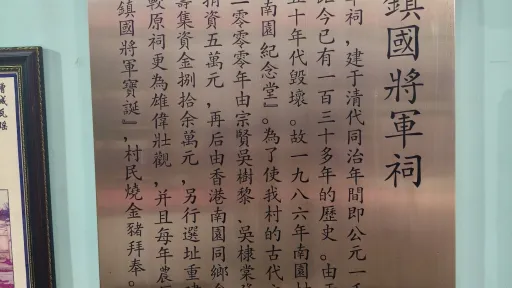 鎮國將軍祠
祠，建于清代同治年間即公元一
今已有一百三十多年的歷史。由
五十年代毀壞。故一九八六年南園
南園紀念堂』。為了使我村的古代
二零零零年由宗賢吳樹黎、吳棣棠
捐資五萬元，再后由香港南園同鄉
籌集資金捌拾余萬元，另行選址重
較原祠更為雄偉壯觀，并且每年農
鎮國將軍寶誕』，村民燒金豬拜奉。